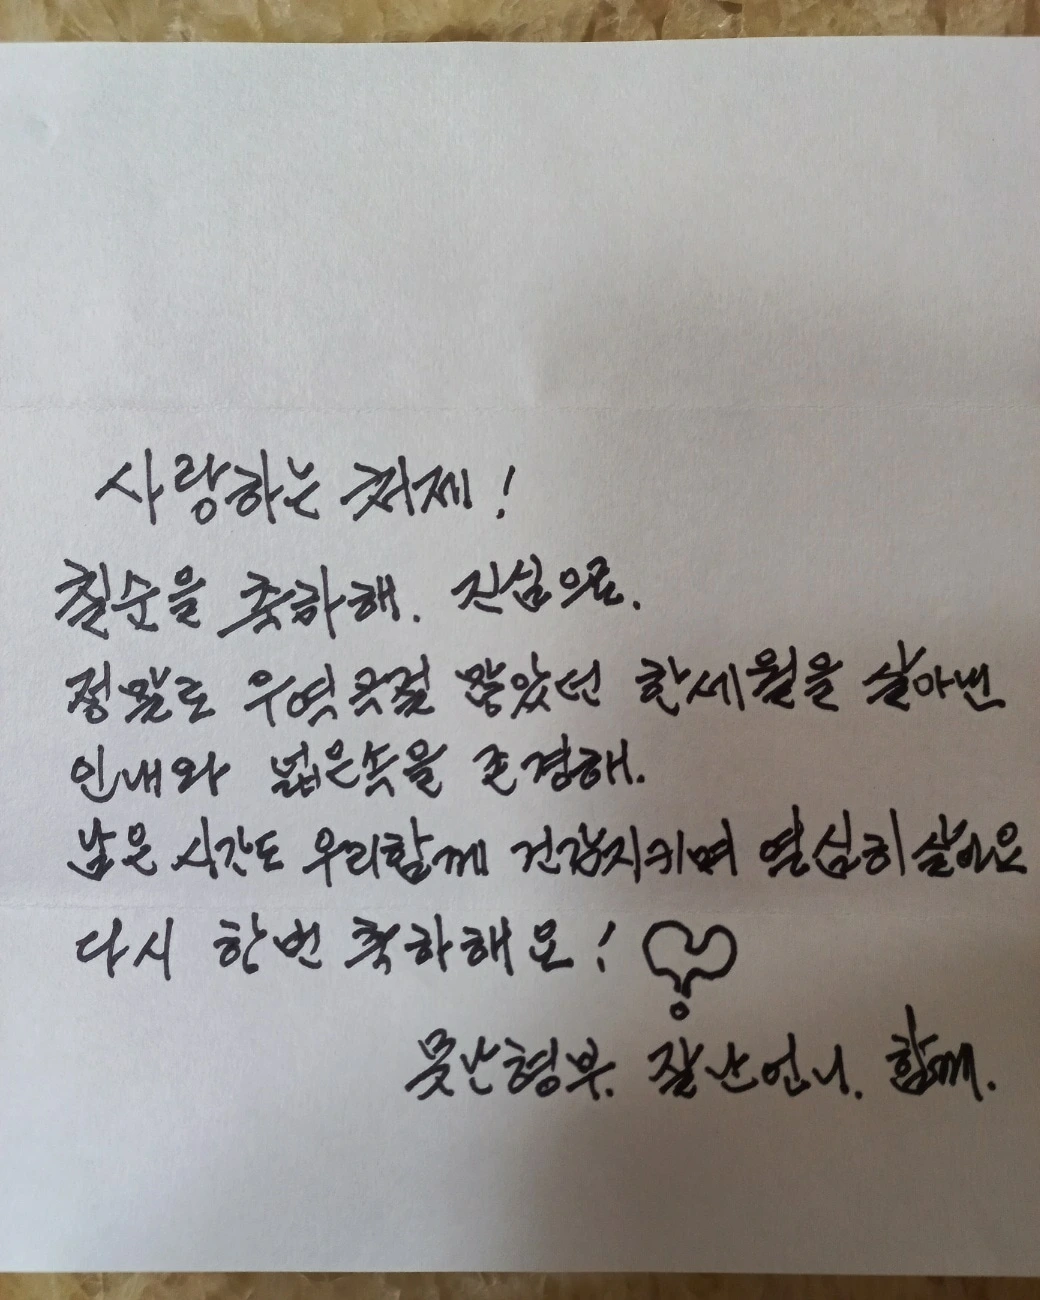 사랑하는 처제!
칠순을 축하해. 진심으로.
정말로 우여곡절 많았던 한세월을 살아낸
인내와 넓은속을 존경해.
남은 시간도 우리함께 건강지키며 열심히살아요
다시 한번 축하해요!
못난형부. 잘난언니. 함께.